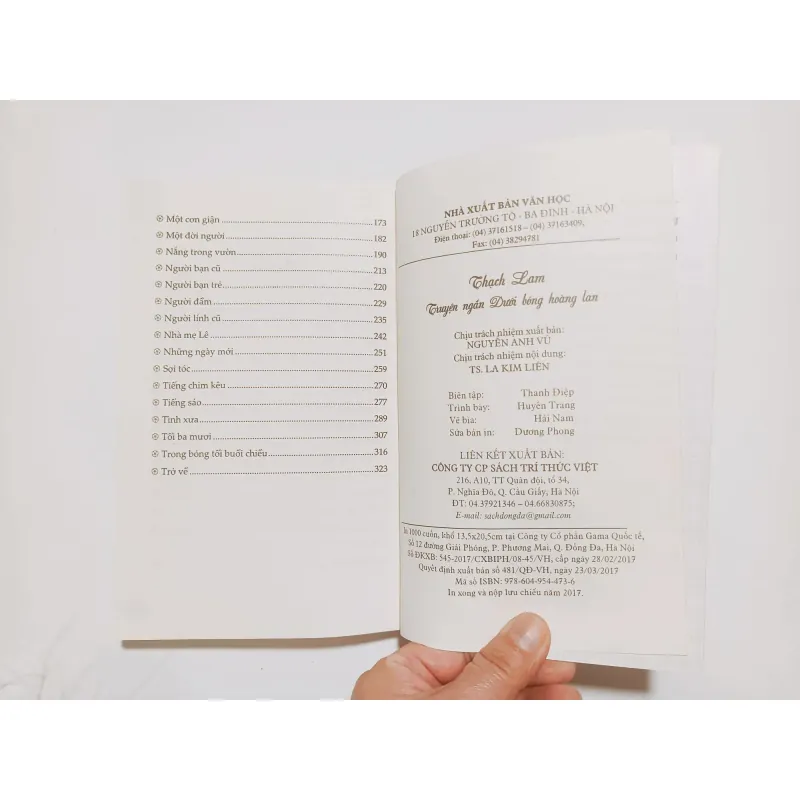 Một cơn giận 173
Một đời người 182
Nắng trong vườn 190
Người bạn cũ 213
Người bạn trẻ 220
Người đầm 229
Người lính cũ 235
Nhà mẹ Lê 242
Những ngày mới 251
Sợi tóc 259
Tiếng chim kêu 270
Tiếng sáo 277
Tình xưa 289
Tối ba mươi 307
Trong bóng tối buổi chiều 316
Trở về 323
NHÀ XUẤT BẢN VĂN HỌC
18 NGUYỄN TRƯỜNG TỘ - BA ĐÌNH - HÀ NỘI
Điện thoại: (04) 37161518 – (04) 37163409,
Fax: (04) 38294781
Thạch Lam
Truyện ngắn Dưới bóng hoàng lan
Chịu trách nhiệm xuất bản:
NGUYỄN ANH VŨ
Chịu trách nhiệm nội dung:
TS. LA KIM LIÊN
Biên tập: Thanh Điệp
Trình bày: Huyền Trang
Vẽ bìa: Hải Nam
Sửa bản in: Dương Phong
LIÊN KẾT XUẤT BẢN:
CÔNG TY CP SÁCH TRÍ THỨC VIỆT
216, A10, TT Quân đội, tổ 34,
P. Nghĩa Đô, Q. Cầu Giấy, Hà Nội
ĐT: 04.37921346 - 04.66830875;
E-mail: sachdongda@gmail.com
In 1000 cuốn, khổ 13,5x20,5cm tại Công ty Cổ phần Gama Quốc tế,
Số 12 đường Giải Phóng, P. Phương Mai, Q. Đống Đa, Hà Nội
Số ĐKXB: 545-2017/CXBIPH/08-45/VH, cấp ngày 28/02/2017
Quyết định xuất bản số 481/QĐ-VH, ngày 23/03/2017
Mã số ISBN: 978-604-954-473-6
In xong và nộp lưu chiểu năm 2017.